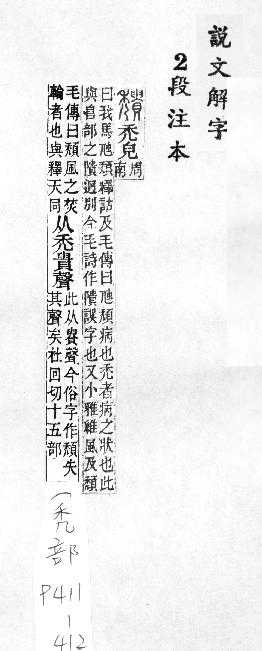 說文解字
2段注本
穨 禿皃 周南
曰我馬虺穨釋詁及毛傳曰虺穨病也禿者病之狀也此
與𨸏部之隤迥別今毛詩作隤誤字也又小雅維風及穨
毛傳曰穨風之焚
輪者也與釋天同
从禿貴聲
此从貴聲今俗字作頹失
其聲矣杜回切十五部
(禿部
P411
|
412